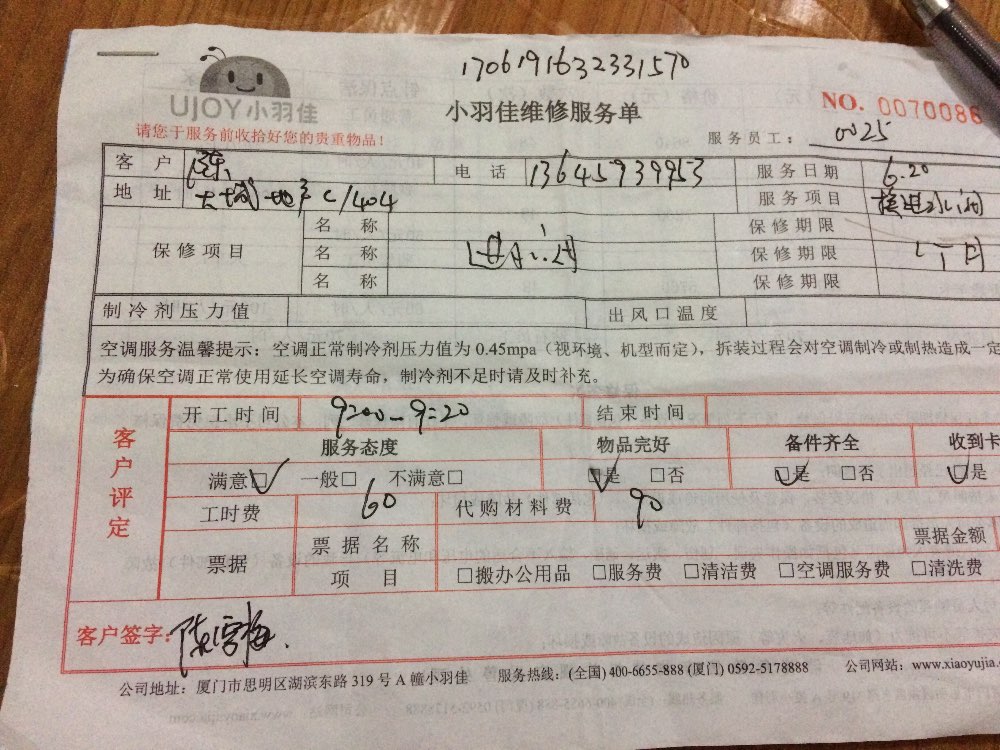 1706191632331570
UJOY小羽佳
小羽佳维修服务单
NO. 0070086
请您于服务前收拾好您的贵重物品！
服务员工： 0025
客户 陈 电话 13645939953 服务日期 6.20
地址 大城地产C/404 服务项目 换进水阀
保修项目 名称 保修期限
名称 进水阀 保修期限 1个月
名称 保修期限
制冷剂压力值 出风口温度
空调服务温馨提示：空调正常制冷剂压力值为 0.45mpa（视环境、机型而定），拆装过程会对空调制冷或制热造成一定
为确保空调正常使用延长空调寿命，制冷剂不足时请及时补充。
客户评定
开工时间 9:00-9:20 结束时间
服务态度 物品完好 备件齐全 收到卡
满意☑ 一般□ 不满意□ ☑是 □否 ☑是 □否 ☑是
工时费 60 代购材料费 90
票据 票据名称 票据金额
项目 □搬办公用品 □服务费 □清洁费 □空调服务费 □清洗费
客户签字：陈雪梅.
公司地址：厦门市思明区湖滨东路 319 号 A 幢小羽佳 服务热线：(全国) 400-6655-888 (厦门) 0592-5178888 公司网站：www.xiaoyujia.